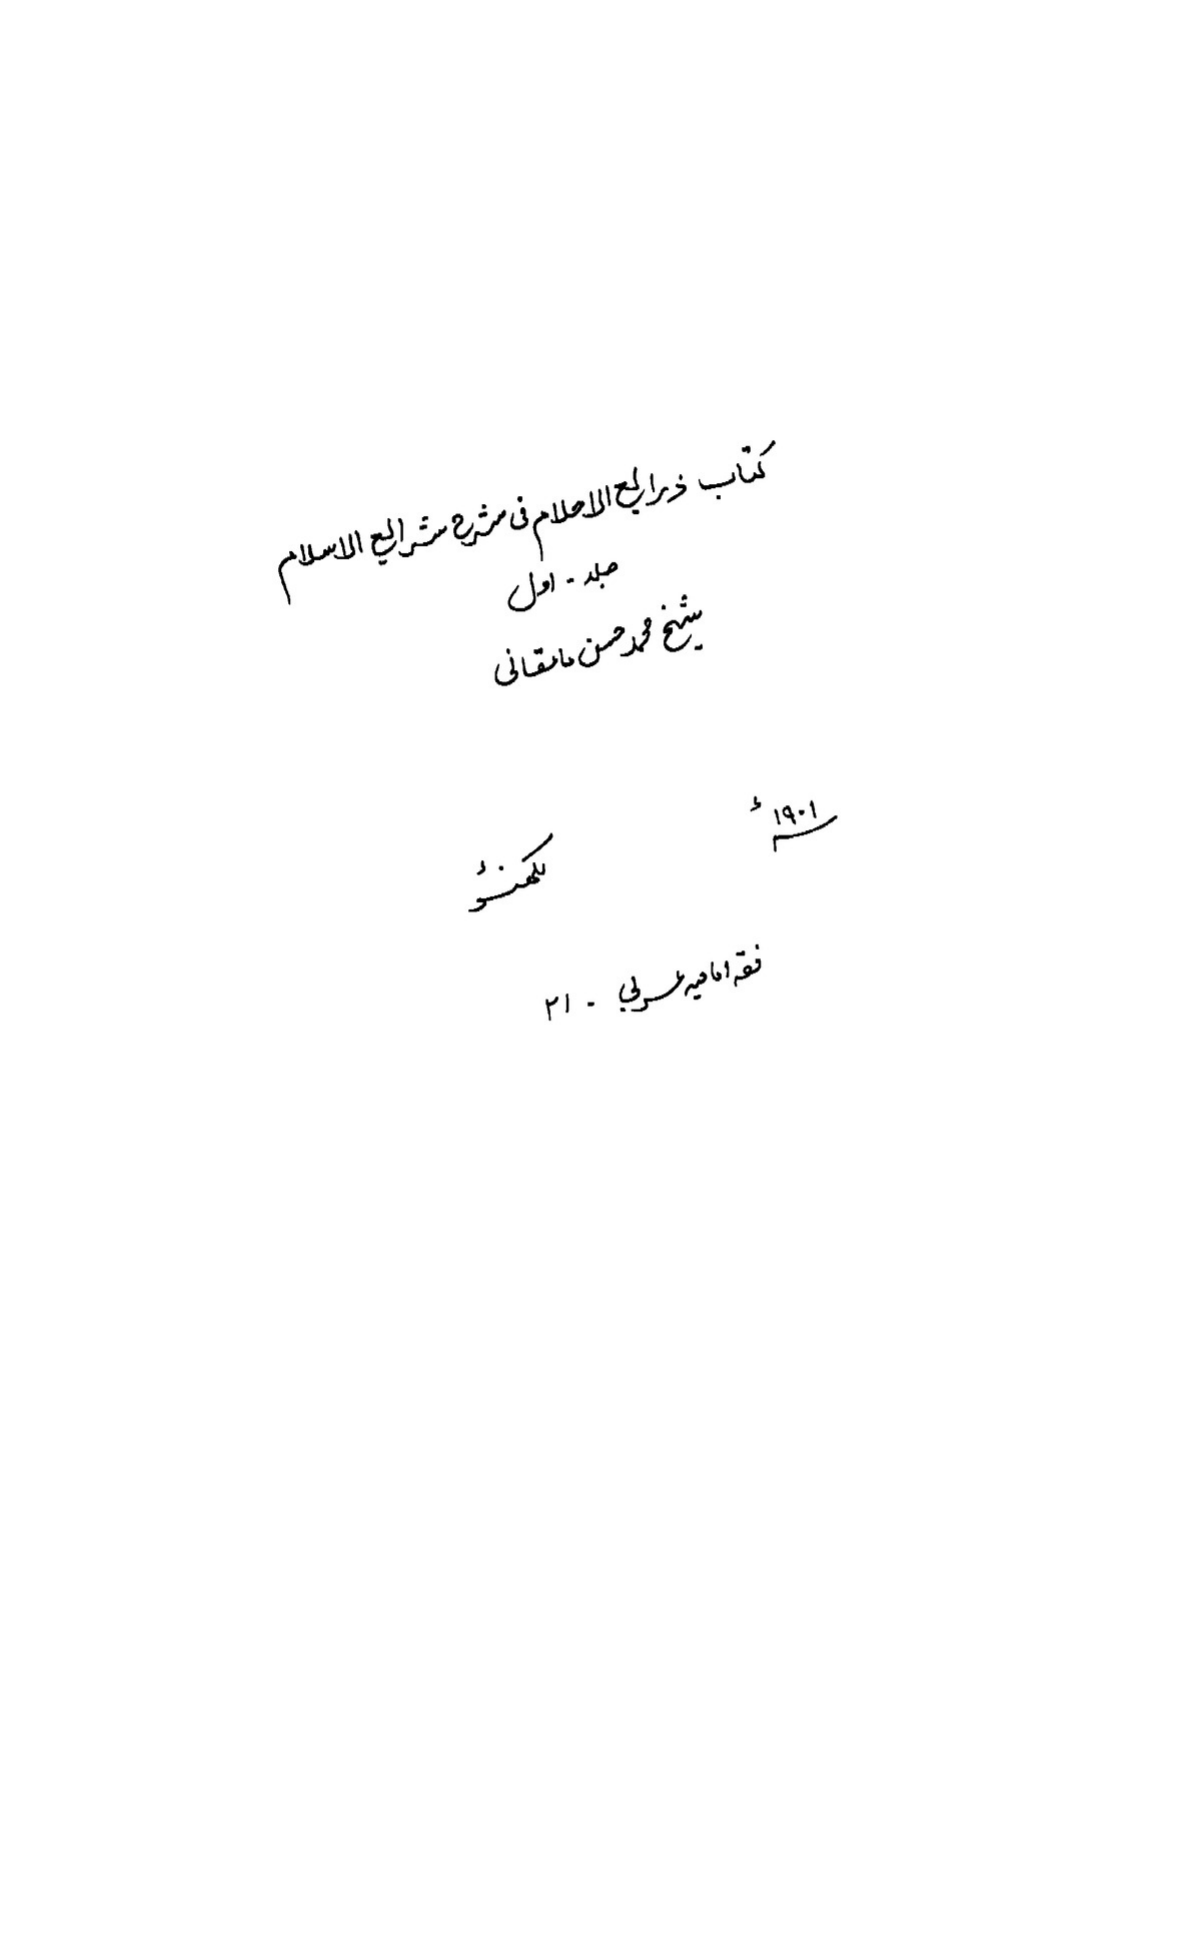 کتاب ذرایع الاحلام فی شرح شرایع الاسلام
جلد - اول
شیخ محمد حسن مامقانی
۱۹۰۱ء
لکھنؤ
فقہ امامیہ عربی - ۲۱